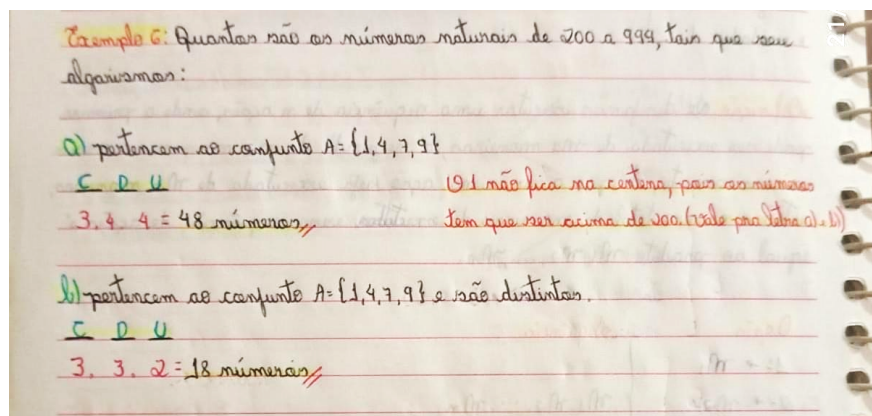 Exemplo 6: Quantos são os números naturais de 200 a 999, tais que seus
algarismos:
a) pertencem ao conjunto A = {1, 4, 7, 9}
C D U
O 1 não fica na centena, pois os números
3. 4. 4 = 48 números
tem que ser acima de 200. (vale pra letra a) e b))
b) pertencem ao conjunto A = {1, 4, 7, 9} e são distintos.
C D U
3. 3. 2 = 18 números